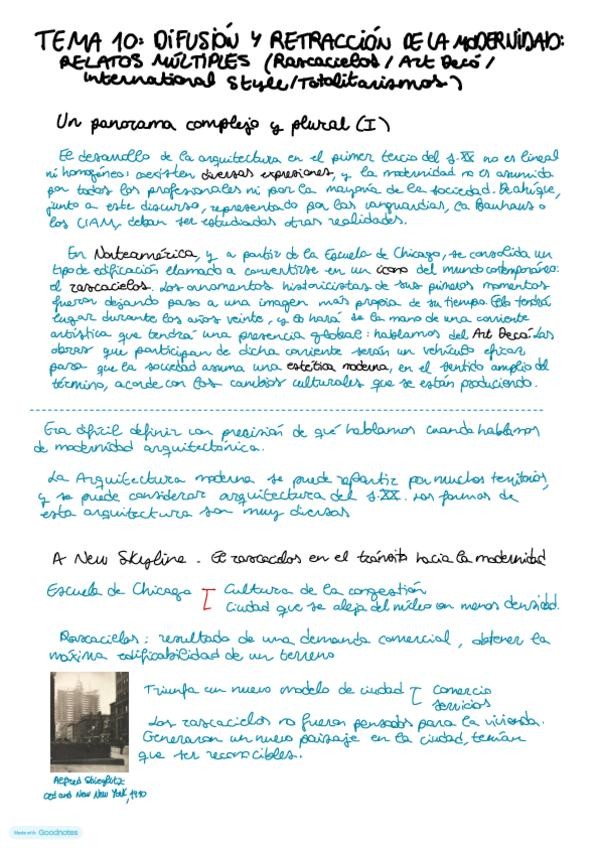 TEMA 10: DIFUSIÓN Y RETRACCIÓN DE LA MODERNIDAD:
RELATOS MÚLTIPLES (Rascacielos / Art Decó /
International Style/Totalitarismos)
Un panorama complejo y plural (I)
El desarrollo de la arquitectura en el primer tercio del s.XX no es lineal
ni homogéneo: coexisten diversas expresiones, y la modernidad no es asumida
por todos los profesionales ni por la mayoría de la sociedad. De ahí que,
junto a este discurso, representado por las vanguardias, la Bauhaus o
los CIAM, deban ser estudiadas otras realidades.
En Norteamérica, y a partir de la Escuela de Chicago, se consolida un
tipo de edificación llamado a convertirse en un icono del mundo contemporáneo:
el rascacielos. Los ornamentos historicistas de sus primeros momentos
fueron dejando paso a una imagen más propia de su tiempo. Ello tendrá
lugar durante los años veinte, y lo hará de la mano de una corriente
artística que tendrá una presencia global: hablamos del Art Decó. Las
obras que participan de dicha corriente serán un vehículo eficaz
para que la sociedad asuma una estética moderna, en el sentido amplio del
término, acorde con los cambios culturales que se están produciendo.
Era difícil definir con precisión de qué hablamos cuando hablamos
de modernidad arquitectónica.
La Arquitectura moderna se puede repartir por muchos territorios,
y se puede considerar arquitectura del s.XX. Las formas de
esta arquitectura son muy diversas
A New Skyline. El rascacielos en el tránsito hacia la modernidad
Escuela de Chicago [ Cultura de la congestión
Ciudad que se aleja del núcleo con menos densidad.
Rascacielos: resultado de una demanda comercial, obtener la
máxima edificabilidad de un terreno
Triunfa un nuevo modelo de ciudad [ Comercio
Servicios
Los rascacielos no fueron pensados para la vivienda.
Generaron un nuevo paisaje en la ciudad, tenían
que ser reconocibles.
Alfred Stieglitz:
Old and New New York, 1910
Made with Goodnotes